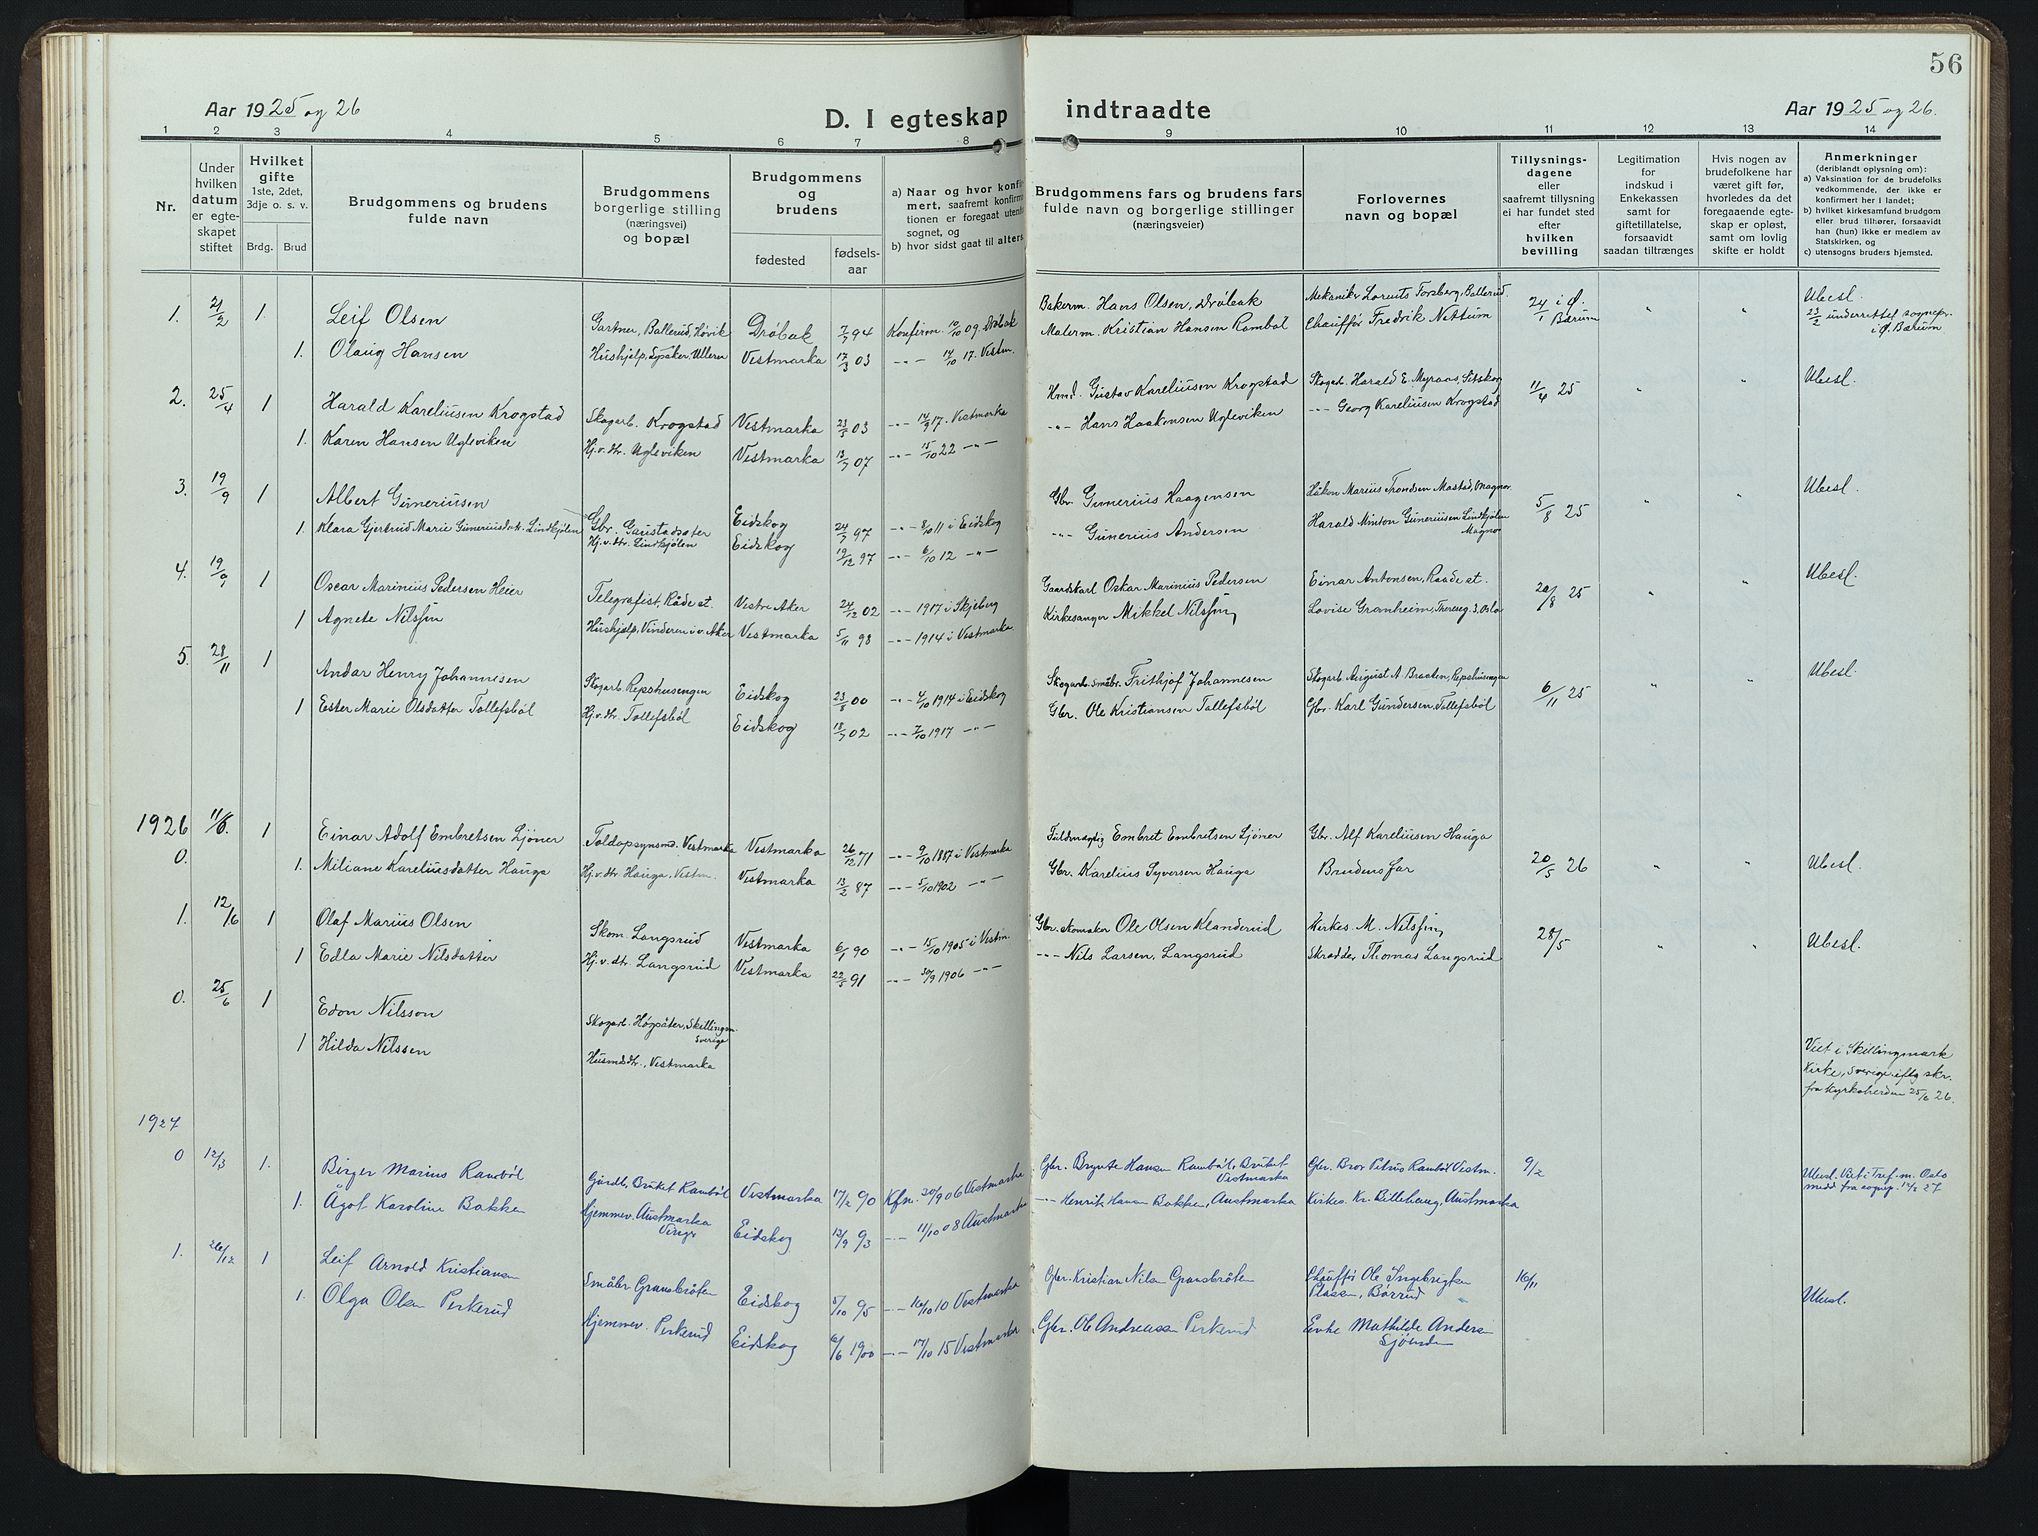 56
Aar 1925 og 26
D. I egteskap indtraadte
Aar 1925 og 26.
1 2 3 4 5 6 7 8 9 10 11 12 13 14
Nr.
Under hvilken datum er egteskapet stiftet
Hvilket gifte
1ste, 2det, 3dje o. s. v.
Brdg. Brud
Brudgommens og brudens fulde navn
Brudgommens borgerlige stilling (næringsvei) og bopæl
Brudgommens og brudens
fødested
fødselsaar
a) Naar og hvor konfir
mert, saafremt konfirma
tionen er foregaat utenfo
sognet, og
b) hvor sidst gaat til alters
Brudgommens fars og brudens fars
fulde navn og borgerlige stillinger
(næringsveier)
Forlovernes
navn og bopæl
Tillysningsdagene
eller
saafremt tillysning
ei har fundet sted
efter
hvilken
bevilling
Legitimation
for
indskud i
Enkekassen
samt for
giftetillatelse,
forsaavidt
saadan tiltrænges
Hvis nogen av
brudefolkene har
været gift før,
hvorledes da det
foregaaende egteskap er opløst,
samt om lovlig
skifte er holdt
Anmerkninger
(deriblandt oplysning om):
a) Vaksination for de brudefolks
vedkommende, der ikke er
konfirmert her i landet;
b) hvilket kirkesamfund brudgom
eller brud tilhører, forsaavidt
han (hun) ikke er medlem av
Statskirken, og
c) utensogns bruders hjemsted.
1. 21/2 1. Leif Olsen Gartner, Ballerud, Høvik Drøbak 7/7 94 Konfirm. 10/10 09 Drøbak Bakerm. Hans Olsen, Drøbak Mekaniker Lorents Torsberg, Ballerud. 24/1 i Ø. Bærum " " Ubesl. 23/2 underrettet sognepr. i Ø. Bærum
1. Olaug Hansen Hushjelp, Lysaker, Ullern Vestmarka 17/3 03 -"- 14/10 17. Vestm. Malerm. Kristian Hansen Rambøl Chauffør Fredrik Nettum
2. 25/4 1 Harald Kareliusen Krogstad Skogarb. Krogstad Vestmarka 23/5 03 -"- 14/9 17. Vestmarka Hmd. Gustav Kareliusen Krogstad Skogarb. Harald E. Myraas, Setskog 11/4 25 " " Ubesl.
1. Karen Hansen Ugleviken Hj.v.dtr. Ugleviken Vestmarka 13/7 07 -"- 15/10 22 -"- -"- Hans Haakensen Ugleviken -"- Georg Kareliusen Krogstad
3. 19/9 1 Albert Guneriusen Gbr. Gaustadsæter Eidskog 24/7 97 -"- 8/10 11 i Eidskog Gbr. Gunerius Haagensen Håkon Marius Trondsen Mastad, Magnor 5/8 25 " " Ubesl.
1. Klara Gjertrud Marie Guneriusdtr. Lindkjølen Hj.v.dtr. Lindkjølen Eidskog 19/12 97 -"- 6/10 12 -"- -"- Gunerius Andersen Harald Minton Guneriusen Lindkjølen Magnor
4. 19/9 1 Oscar Marinius Pedersen Heier Telegrafist, Råde st. Vestre Aker 24/12 02 -"- 1917 i Skjeberg Gaardskarl Oskar Marinius Pedersen Einar Antonsen, Raade st. 20/8 25 " " Ubesl.
1 Agnete Nilssen Hushjælp, Vinderen i v. Aker Vestmarka 5/11 98 -"- 1914 i Vestmarka Kirkesanger Mikkel Nilssen Lovise Granheim, Thereseg. 3, Oslo
5. 28/11 1 Andar Henry Johannesen Skogarb. Repshusengen Eidskog 23/8 00 -"- 4/10 1914 i Eidskog Skogarb. småbr. Frithjof Johannesen Skogarb. August A. Braaten, Repshusengen 6/11 25 " " Ubesl.
1 Ester Marie Olsdatter Tollefsbøl Hj.v.dtr. Tollefsbøl Eidskog 18/7 02 -"- 7/10 1917 -"- Gbr. Ole Kristiansen Tollefsbøl Gbr. Karl Gundersen, Tollefsbøl
1926 11/6. 1 Einar Adolf Embretsen Ljøner Toldopsynsmd. Vestmarka Vestmarka 26/12 71 -"- 9/10 1887 i Vestmarka Fuldmægtig Embret Embretsen Ljøner Gbr. Alf Kareliusen Hauga
0. 1. Miliane Kareliusdatter Hauga Hj.v.dtr Hauga, Vestm. Vestmarka 13/2 87 -"- 5/10 1902 -"- Gbr. Karelius Syversen Hauga Brudens far 20/5 26 " " Ubesl.
1. 12/6 1 Olaf Marius Olsen Skom. Langsrud Vestmarka 6/1 90 -"- 15/10 1905 i Vestm. Gbr. skomaker Ole Olsen Klanderud Kirkes. M. Nilssen 28/5 " " Ubesl.
1 Edla Marie Nilsdatter Hj.v.dtr. Langsrud Vestmarka 22/5 91 -"- 30/9 1906 -"- -"- Nils Larsen, Langsrud Skrædder Thomas Langsrud
0. 25/6 1 Edon Nilsson Skogarb. Høgsäter, Skillingm. Sverige
1 Hilda Nilssen Husmdsdtr., Vestmarka Viet i Skillingmark Kirke, Sverige iflg skr. fra Kyrkoherden 25/6 26.
1927
0 12/3 1. Birger Marius Rambøl Gårdbr. Bruket Rambøl Vestmarka 17/2 90 Kfn. 30/9 06 Vestmarka Gbr. Brynte Hansen Rambøl, Bruket Vestmarka Gbr. Bror Petrus Rambøl Vestm. 9/2 Ubesl. Viet i Tref. m. Oslo medd fra sognp. 12/3 27
1. Ågot Karoline Bakken Hjemmev. Austmarka Vinger Eidskog 13/9 93 -"- 11/10 08 Austmarka -"- Henrik Hansen Bakken, Austmarka Kirkes. Kr. Billehaug, Austmarka
1. 26/12 1 Leif Arnold Kristiansen Småbr Gransbråten Eidskog 5/10 95 -"- 16/10 10 Vestmarka Gbr. Kristian Nilsen Gransbråten Chauffør Ole Ingebrigtsen Plassen, Børrud 16/11 Ubesl.
1. Olga Olsen Perkerud Hjemmev. Perkerud Eidskog 6/6 1900 -"- 17/10 15 Vestmarka Gbr. Ole Andreassen Perkerud Enke Mathilde Andersen Sjøenden